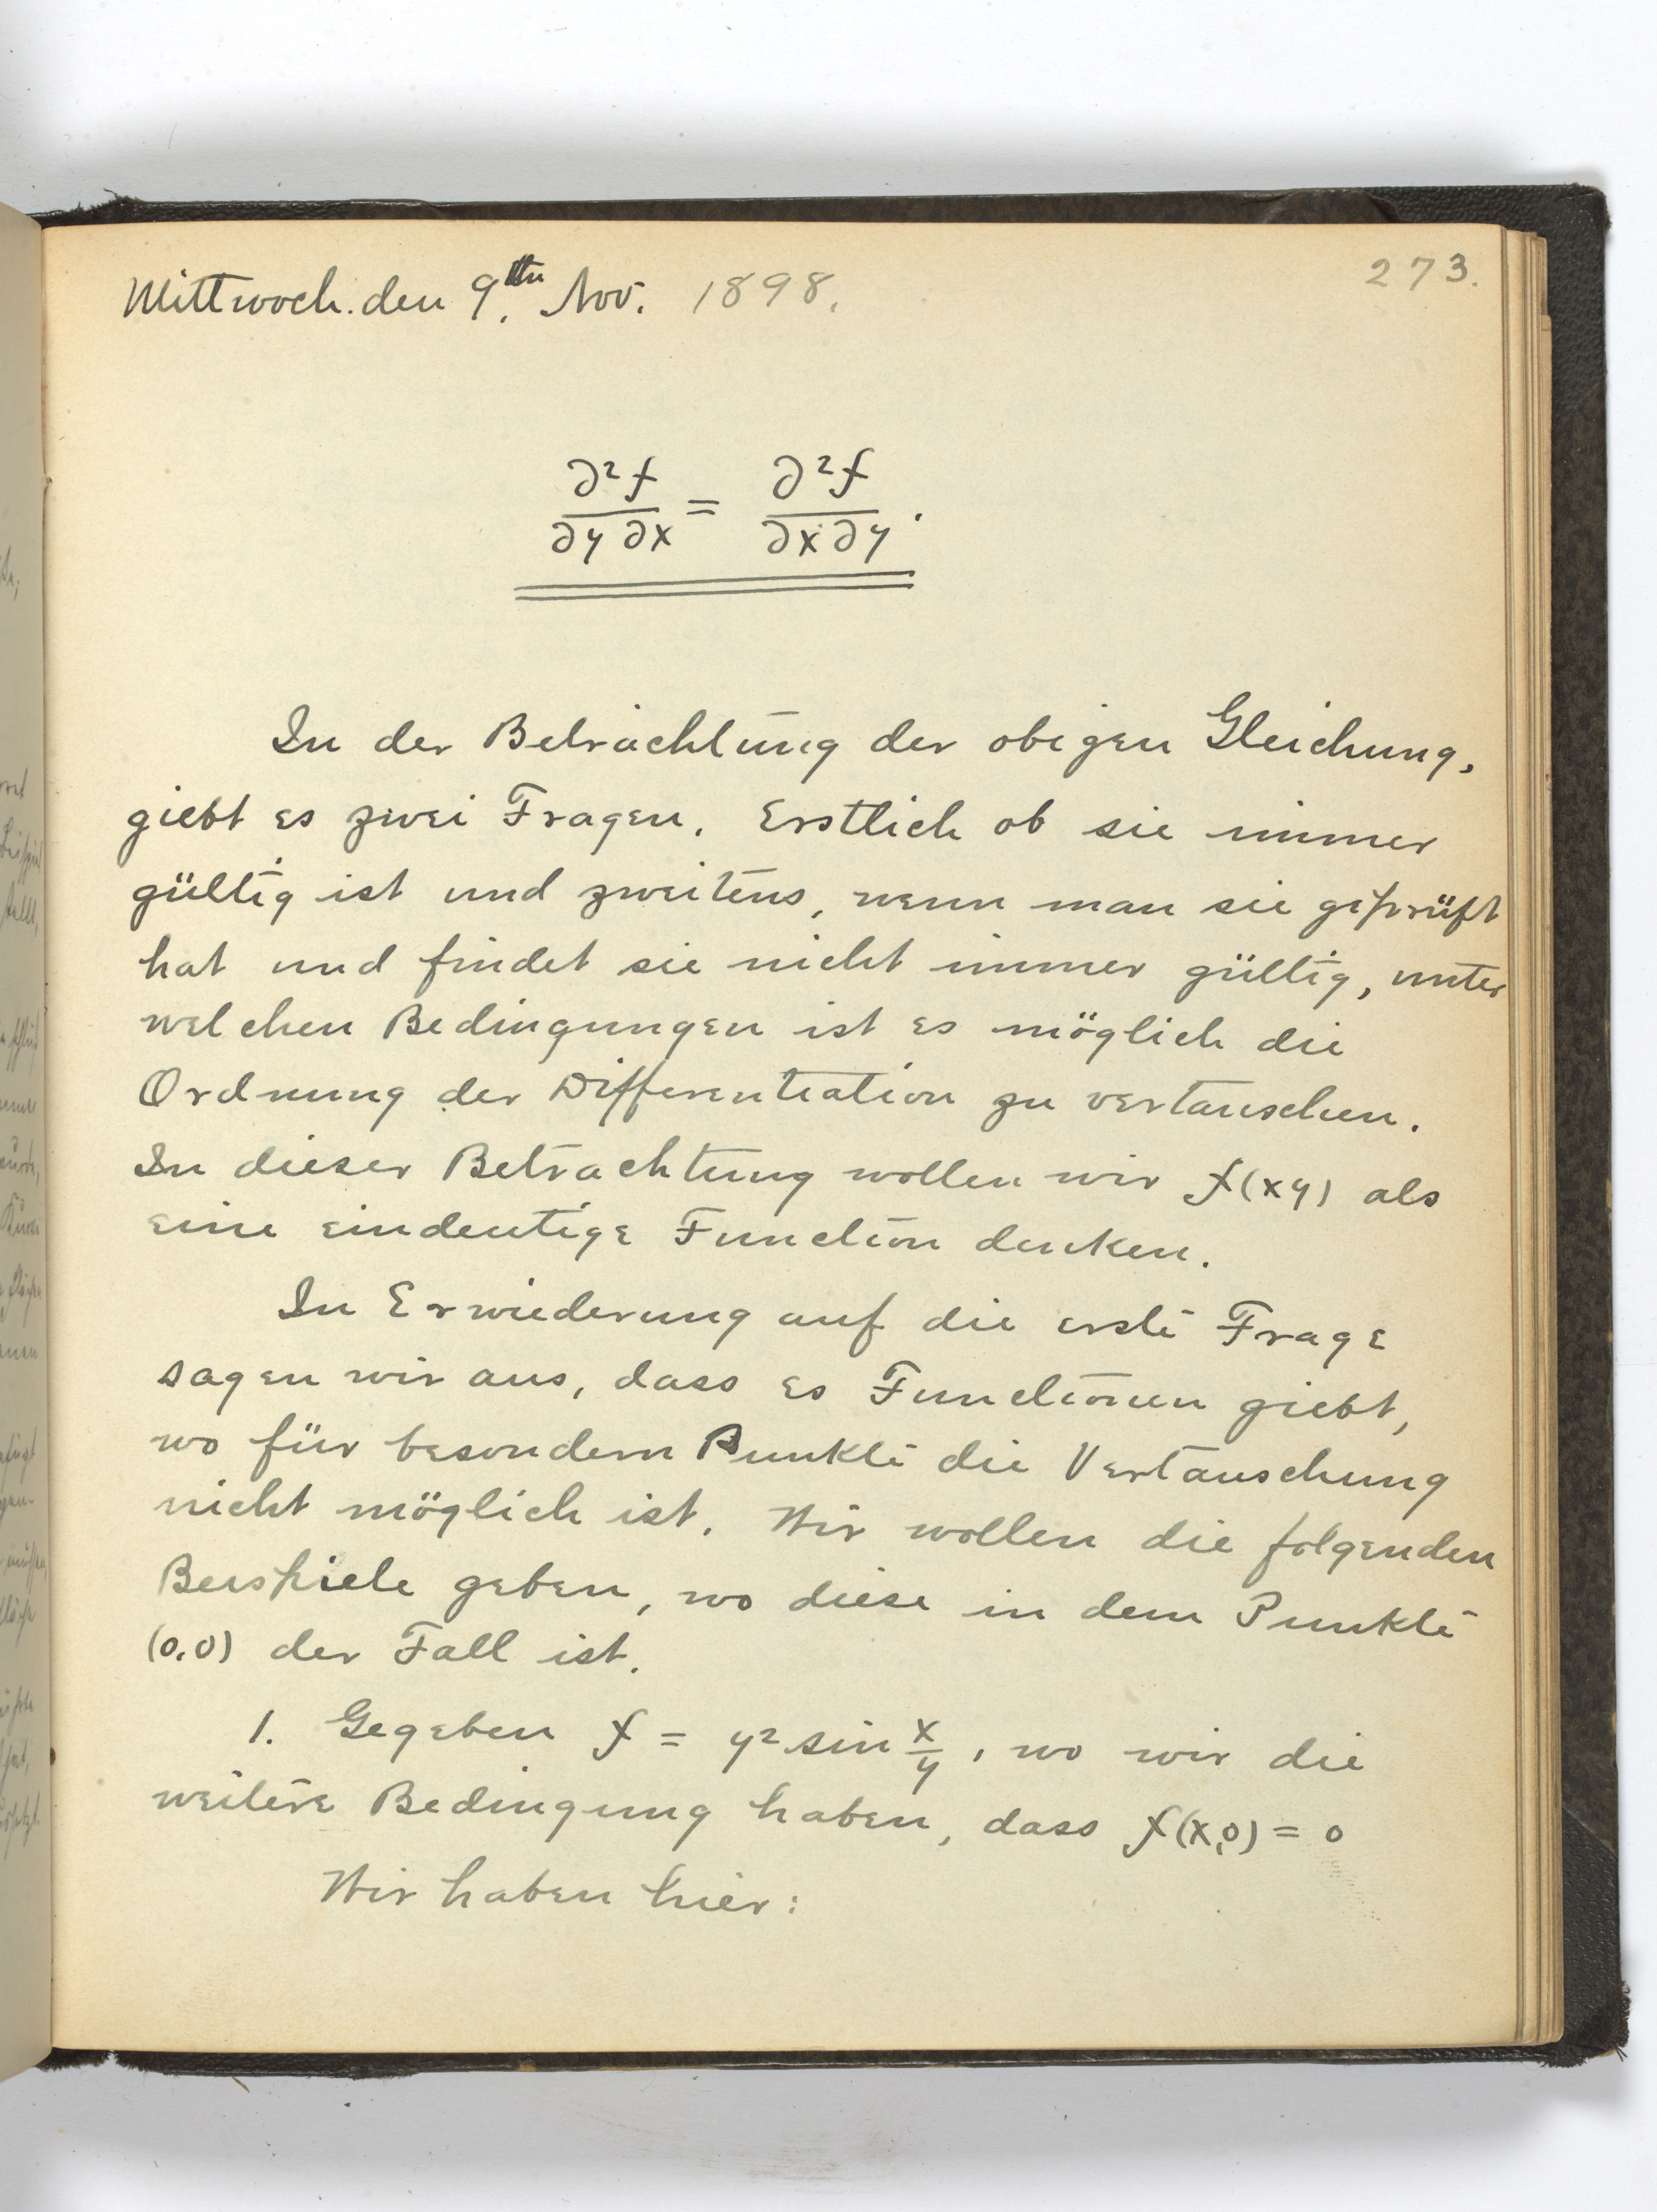 273.
Mittwoch. den 9.ten Nov. 1898.
∂²f/∂y∂x = ∂²f/∂x∂y.
In der Betrachtung der obigen Gleichung,
giebt es zwei Fragen. Erstlich ob sie immer
gültig ist und zweitens, wenn man sie geprüft
hat und findet sie nicht immer gültig, unter
welchen Bedingungen ist es möglich die
Ordnung der Differentiation zu vertauschen.
In dieser Betrachtung wollen wir f(xy) als
eine eindeutige Function denken.
In Erwiederung auf die erste Frage
sagen wir aus, dass es Functionen giebt,
wo für besondern Punkte die Vertauschung
nicht möglich ist. Wir wollen die folgenden
Beispiele geben, wo diese in dem Punkte
(0,0) der Fall ist.
1. Gegeben f = y² sin x/y, wo wir die
weitere Bedingung haben, dass f(x,0) = 0
Wir haben hier: